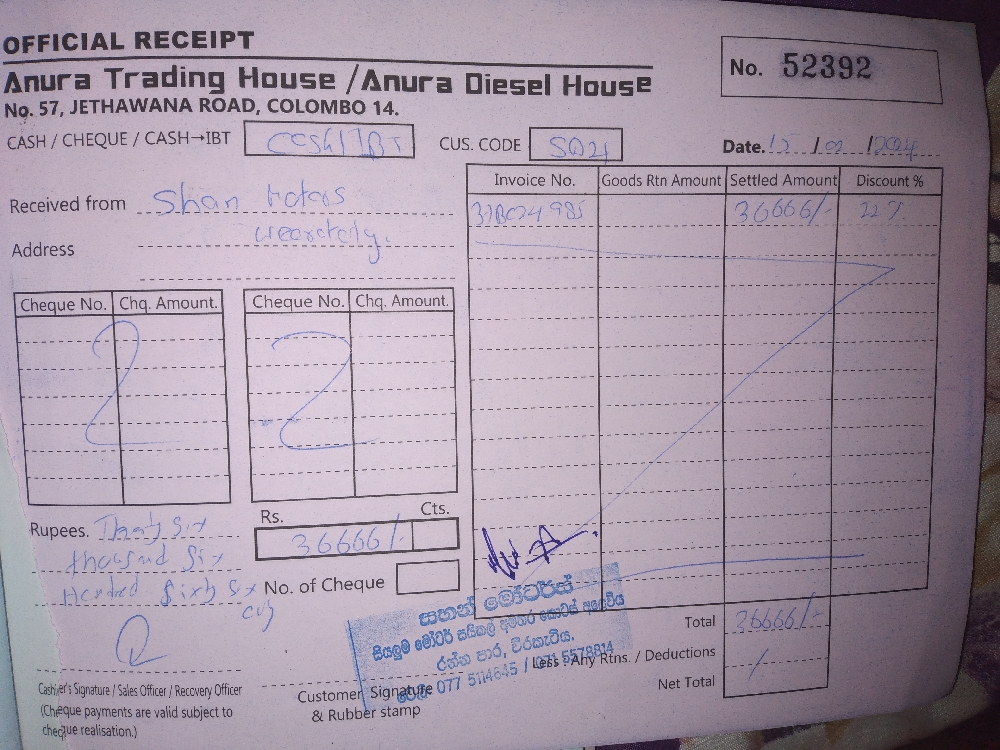 OFFICIAL RECEIPT
Anura Trading House / Anura Diesel House
No. 57, JETHAWANA ROAD, COLOMBO 14.
No. 52392
CASH / CHEQUE / CASH→IBT
CUS. CODE
Date. 15 / 02 / 2024
Received from Shan Motors
Address
Invoice No. Goods Rtn Amount Settled Amount Discount %
36666/- 22%
Cheque No. Chq. Amount. Cheque No. Chq. Amount.
Rupees. Thirty Six
thousand Six
Hundred Sixty Six
Rs. Cts.
36666/-
No. of Cheque
සහන් මෝටර්ස්
සියලුම මෝටර් සයිකල් අමතර කොටස්
රත්න පාර, වීරකැටිය.
077 5114645 / 071 5578814
Total 36666/-
Less : Any Rtns. / Deductions
Net Total
Cashier's Signature / Sales Officer / Recovery Officer
(Cheque payments are valid subject to
cheque realisation.)
Customer Signature
& Rubber stamp